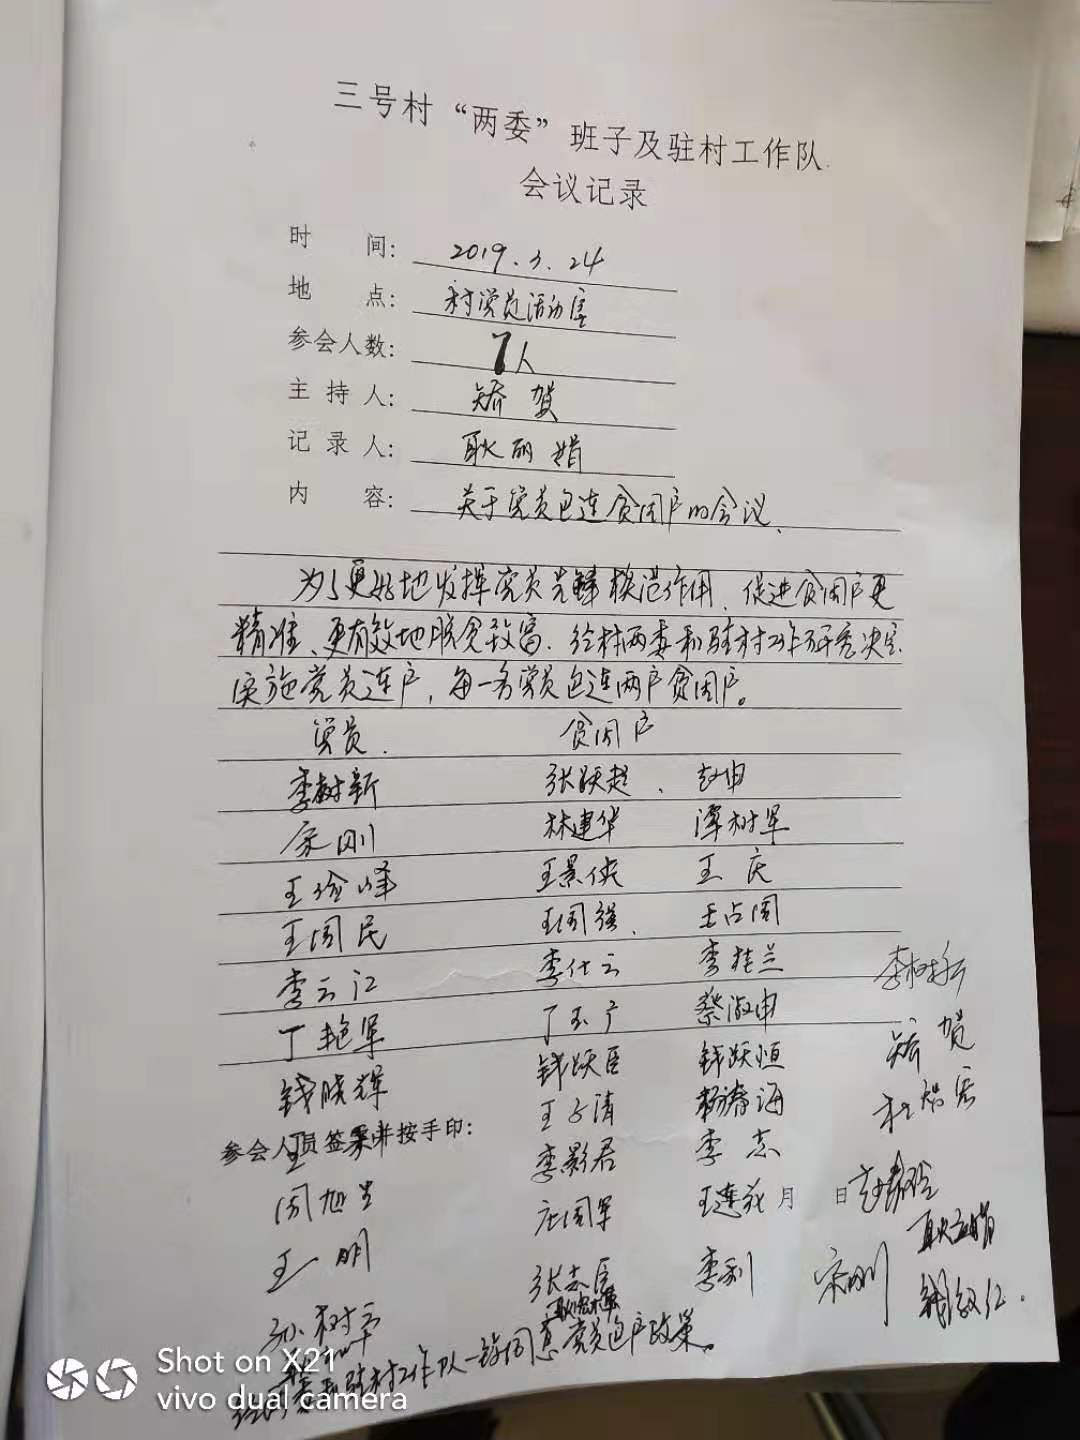 三号村“两委”班子及驻村工作队
会议记录
时 间: 2019.3.24
地 点: 村党员活动室
参会人数: 7人
主 持 人: 矫贺
记 录 人: 耿丽娟
内 容: 关于党员包连贫困户的会议.
为了更好地发挥党员先锋模范作用.促进贫困户更
精准、更有效地脱贫致富.经村两委和驻村工作研究决定
实施党员连户,每一名党员包连两户贫困户。
党员. 贫困户
李树新 张跃超、 赵申
宋刚 林建华 潭树军
王 峰 王景侠 王庆
王国民 王国强、 王占国
李云江 李仕云 李桂兰
李树
丁艳军 丁玉广 蔡淑申
矫贺
钱晓辉 钱跃臣 钱跃恒
王占清 杨海
参会人员签字并按手印:
李影君 李志
周旭 庄国军 王莲花 月 日
耿丽娟
王明 张志臣 李利 宋刚 钱 仁.
孙树
驻村工作队一致同意党员包户政策。
Shot on X21
vivo dual camera